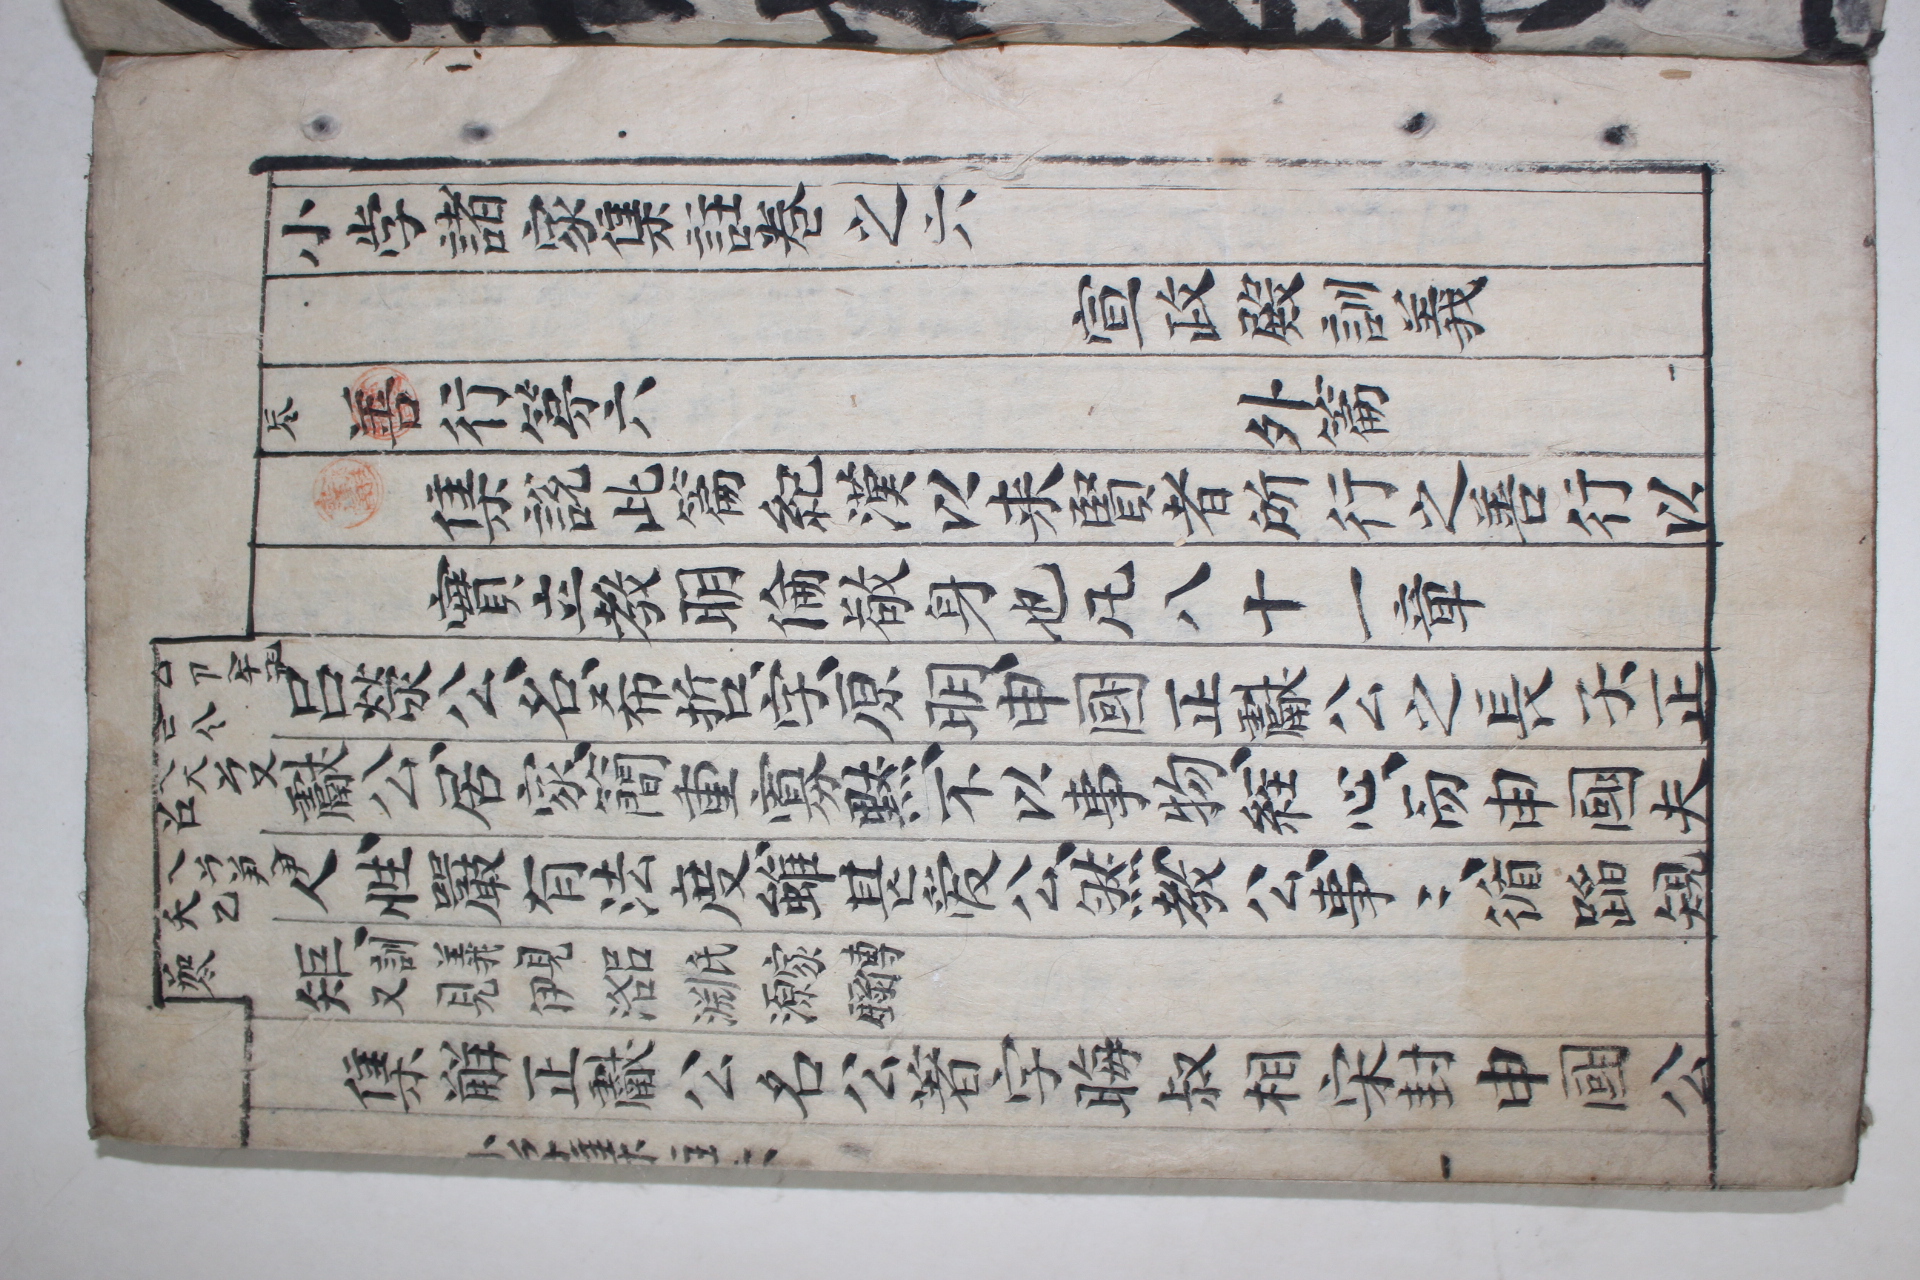 小学諸家集註巻之六
宣政殿訓義
善行第六
外篇
集説此篇紀漢以来賢者所行之善行以
實立教明倫敬身也凡八十一章
呂滎公名希哲字原明申國正獻公之長子正
獻公居家簡重寡黙不以事物経心而申國夫
人性嚴有法度雖甚爱公然教公事〻循蹈規
矩
訓義見呂氏家傳
又見伊洛淵源録
集解正獻公名公著字晦叔相宋封申國公